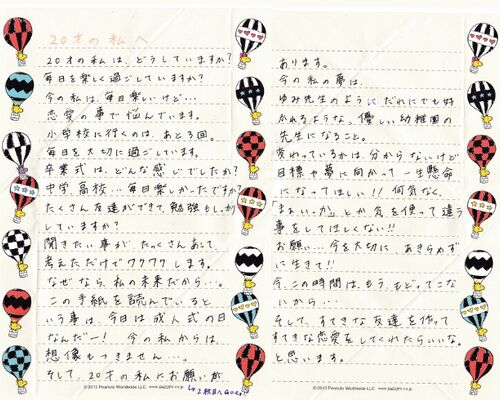 20才の私へ
20才の私は、どうしていますか?
毎日を楽しく過ごしていますか?
今の私は、毎日楽しいけど…
恋愛の事で悩んでいます。
小学校に行くのは、あと3回。
毎日を大切に過ごしています。
卒業式は、どんな感じでしたか?
中学、高校…毎日楽しかったですか?
たくさん友達ができて、勉強もしっかり
していますか?
聞きたい事が、たっくさんあって、
考えただけでワクワクします。
なぜなら、私の未来だから…。
この手紙を読んでいると
いう事は、今日は成人式の日
なんだー! 今の私からは、
想像もつきません…。
そして、20才の私にお願いが
↳2枚目へGo
©2013 Peanuts Worldwide LLC www.SNOOPY.co.jp
あります。
今の私の夢は、
ゆみ先生のように、だれにでも好
かれるような、優しい幼稚園の
先生になること。
変わっているかは、分からないけど
目標や夢に向かって一生懸命
になってほしい!! 何気なく、
「まぁいっか」とか 気を使って違う
事をしてほしくない!!
お願い…今を大切に、あきらめず
に生きて!!
今、この時間は、もう、もどってこな
いから…
そして、すてきな友達を作って
すてきな恋愛をしてくれたらいいな。
と思います。
©2013 Peanuts Worldwide LLC www.SNOOPY.co.jp